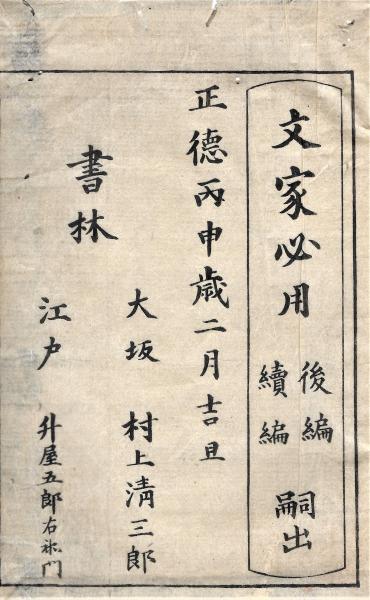 文家必用 後編 續編 嗣出
正德丙申歳二月吉旦
書林
大坂 村上清三郎
江戸 升屋五郎右衛門